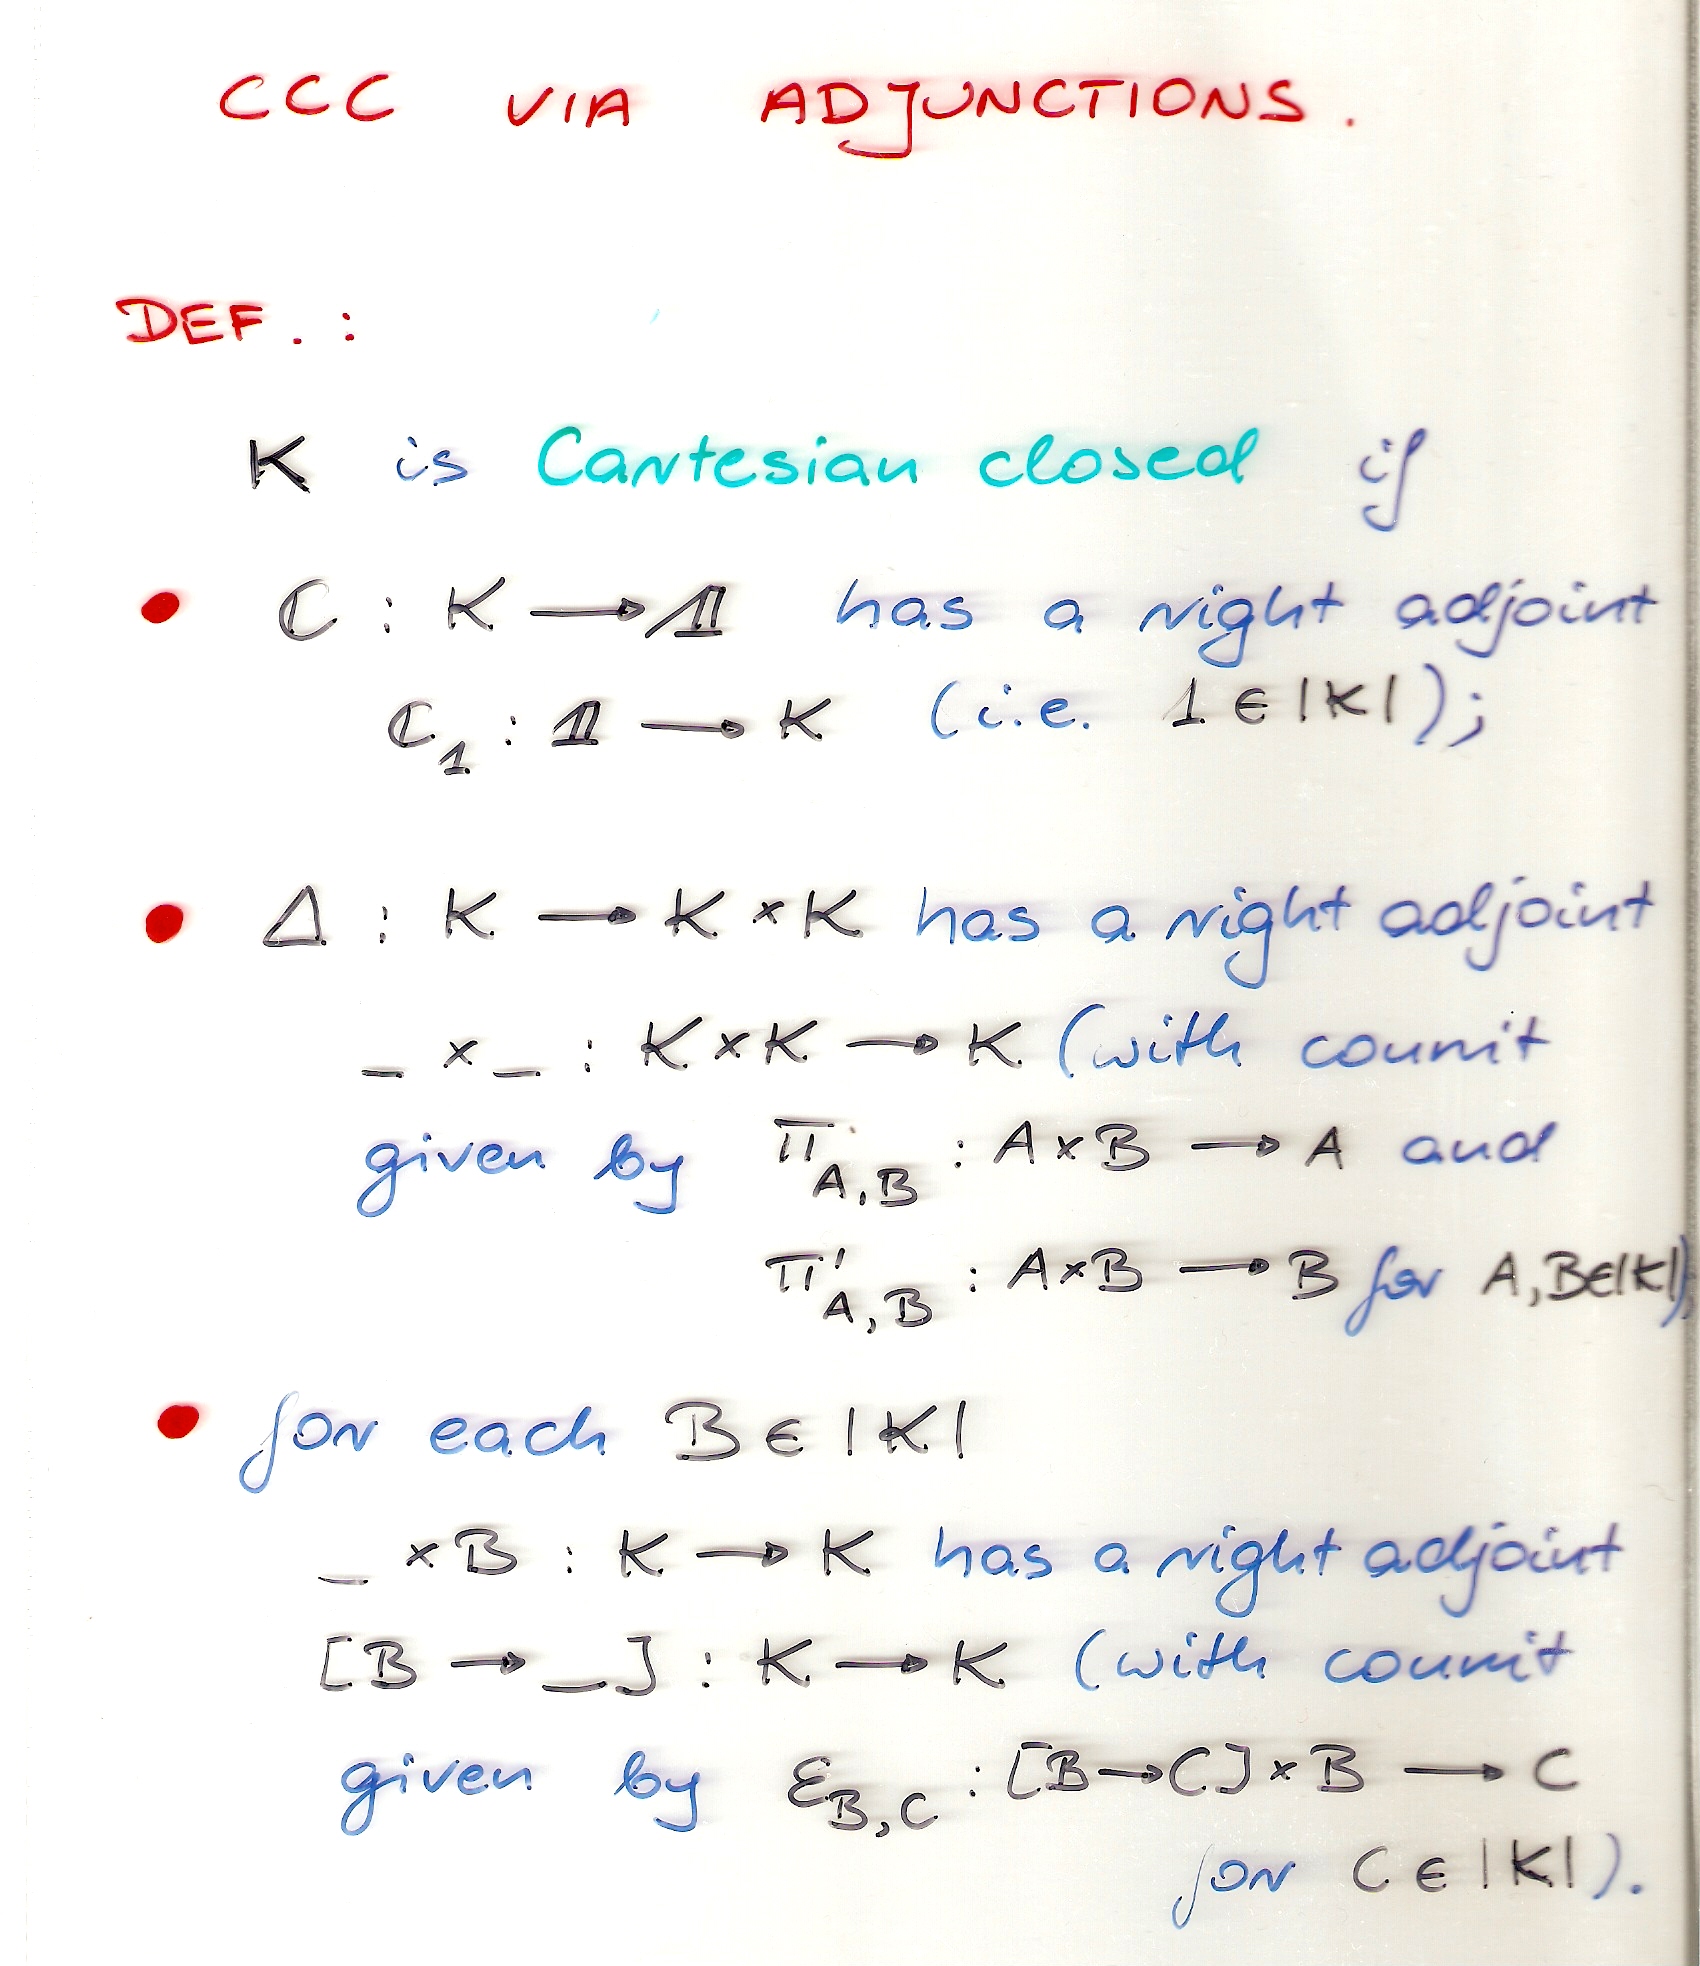 CCC VIA ADJUNCTIONS.
DEF. :
K is Cartesian closed if
• ℂ : K ⟶ 𝟙 has a right adjoint
ℂ₁ : 𝟙 ⟶ K (i.e. 1 ∈ |K|);
• Δ : K ⟶ K × K has a right adjoint
_ × _ : K × K ⟶ K (with counit
given by π_{A,B} : A × B ⟶ A and
π'_{A,B} : A × B ⟶ B for A, B ∈ |K|);
• for each B ∈ |K|
_ × B : K ⟶ K has a right adjoint
[B → _] : K ⟶ K (with counit
given by ε_{B,C} : [B → C] × B ⟶ C
for C ∈ |K|).